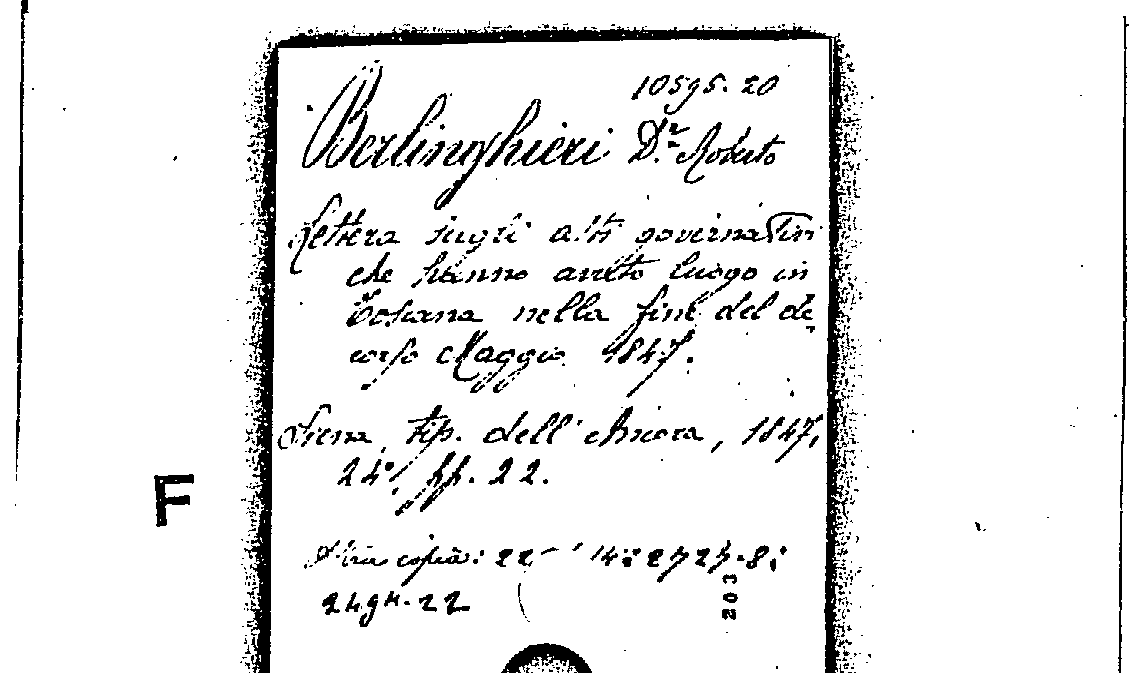 10595.20
Berlinghieri D.r Roberto
Lettera sugli atti governativi
che hanno avuto luogo in
Toscana nella fine del de-
corso Maggio 1847.
Siena, tip. dell' Ancora, 1847,
24°, pp. 22.
F
Altra copia: 22
2494.22
203